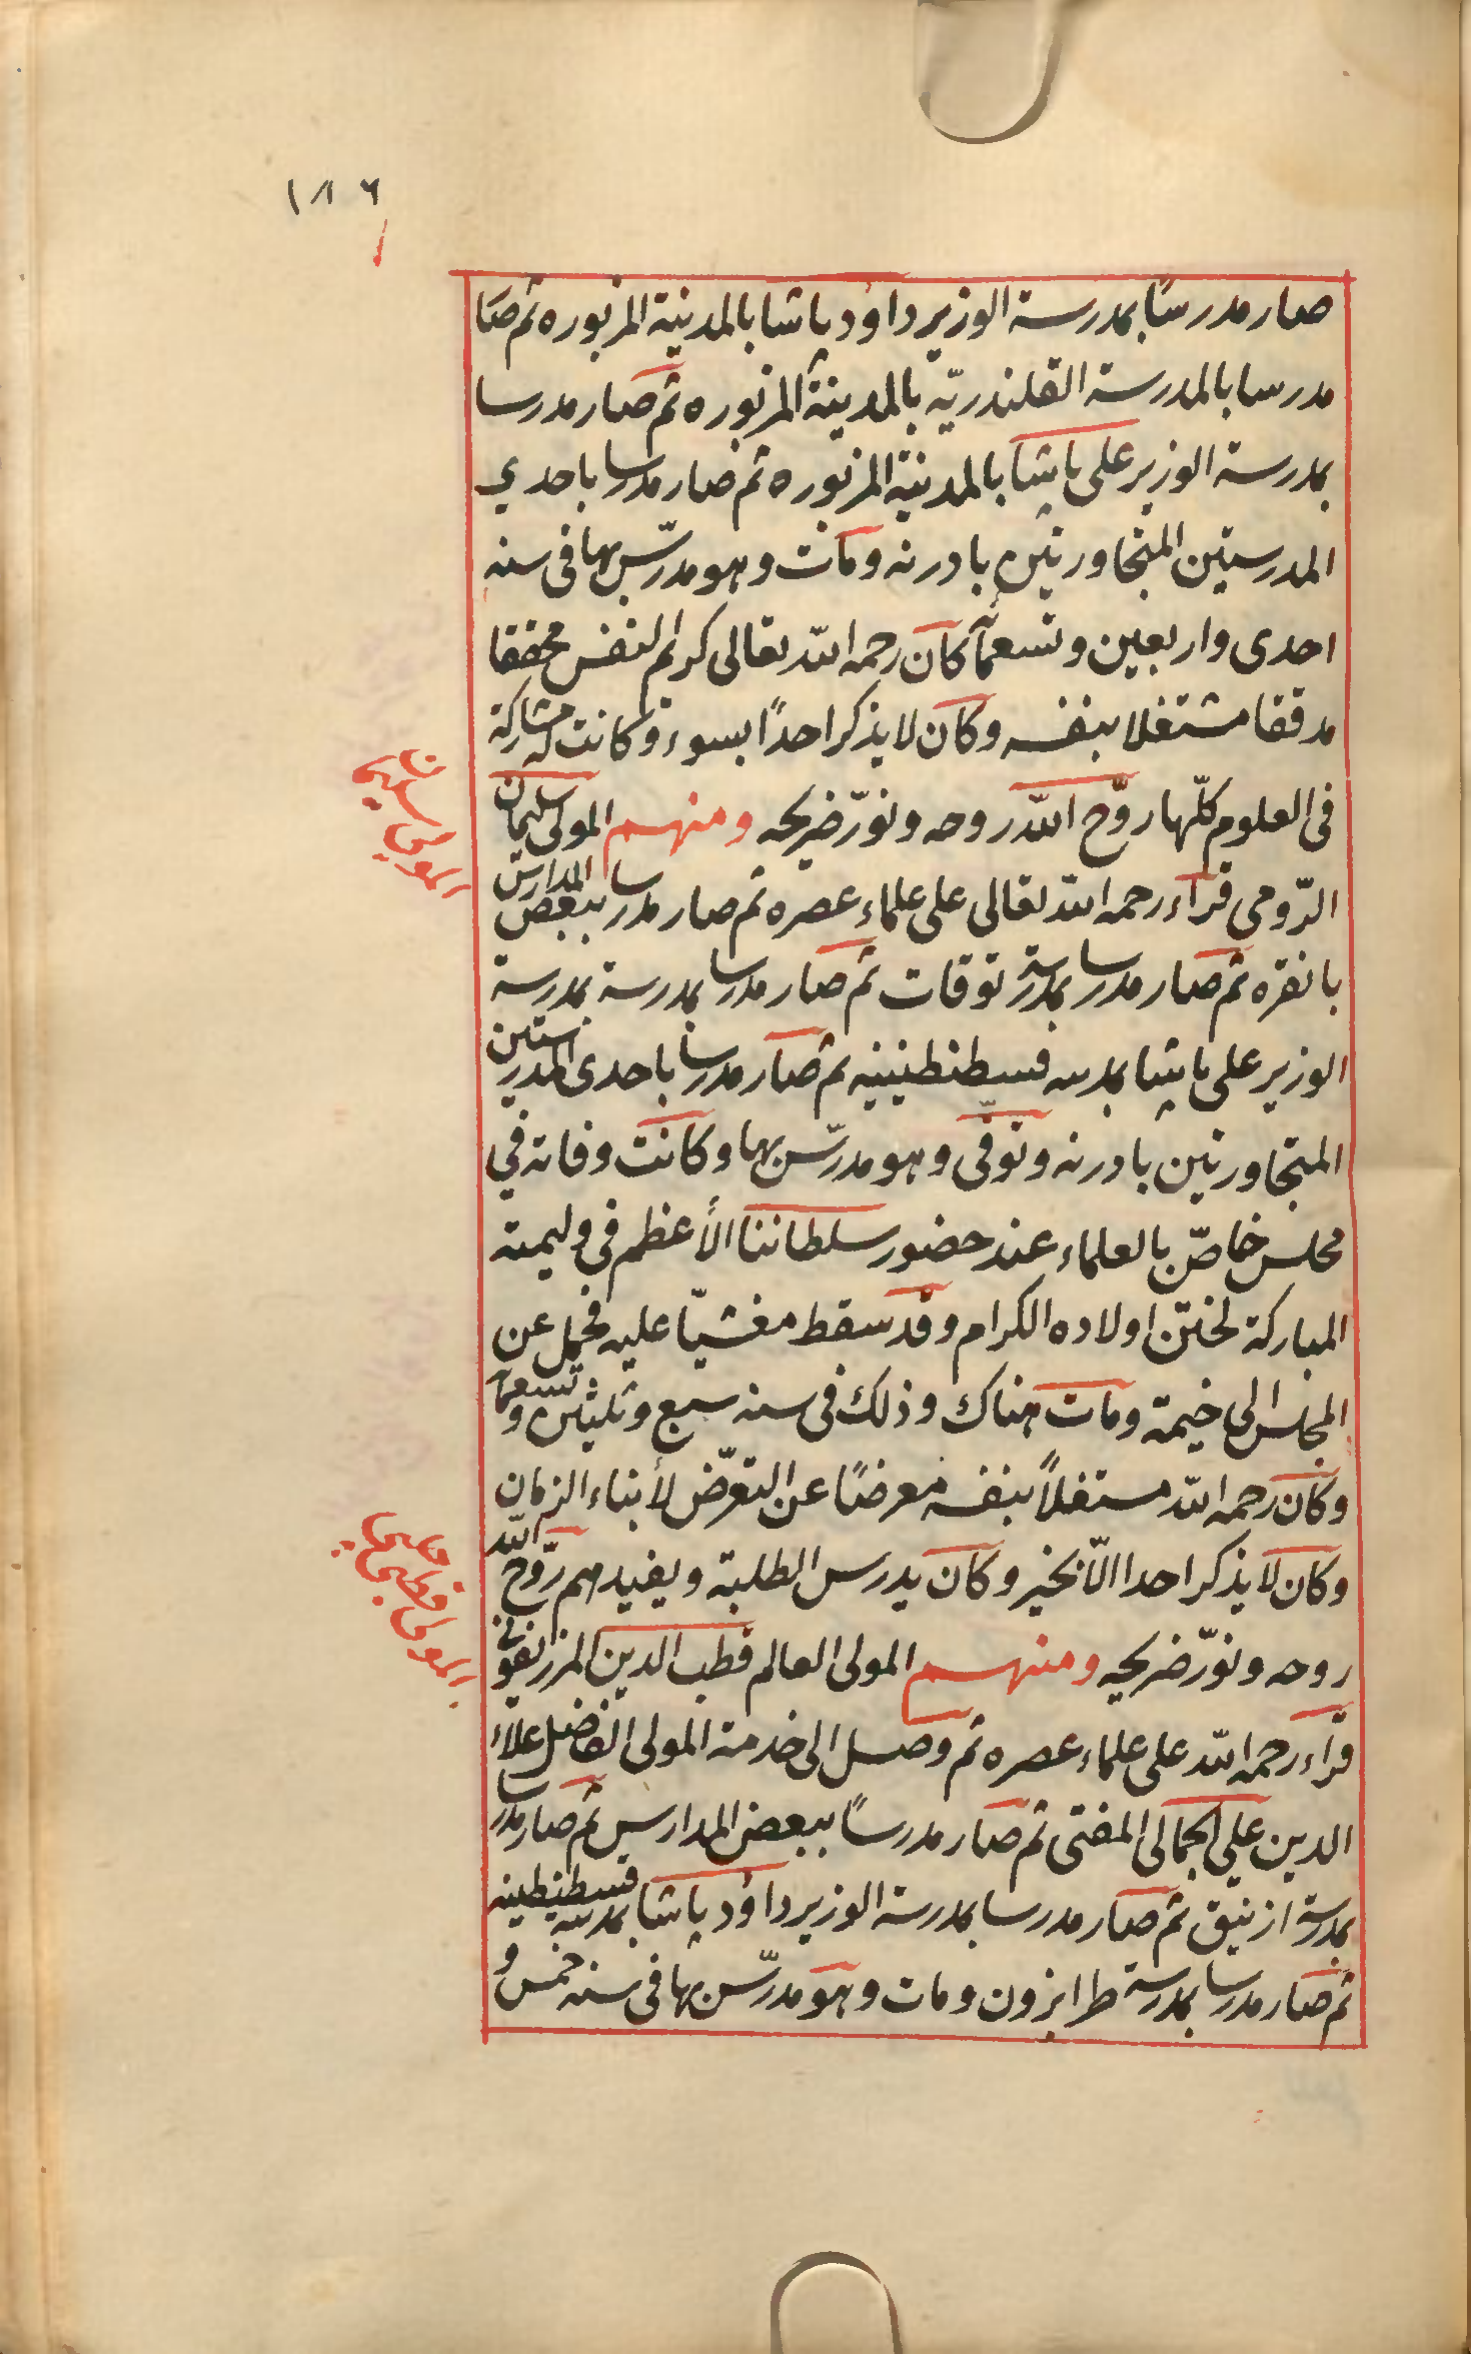 ١٨٦
صار مدرسًا بمدرسة الوزير داود پاشا بالمدينة المزبوره ثم صا
مدرسا بالمدرسة القلندريّه بالمدينة المزبوره ثم صار مدرسا
بمدرسة الوزير على پاشا بالمدينة المزبوره ثم صار مدرسا باحدي
المدرستين المتجاورتين بادرنه ومات وهو مدرّس بها فى سنه
احدى واربعين وتسعمآئة كان رحمه الله تعالى كريم النفس محققا
مدققا مشتغلا بنفسه وكان لا يذكر احدًا بسوء وكانت له مشاركة
فى العلوم كلّها روّح الله روحه ونوّر ضريحه ومنهم المولى سليمان
المولى سليمان
الرّومى قراء رحمه الله تعالى على علماء عصره ثم صار مدرسا ببعض المدارس
بانقره ثم صار مدرسا بمدرسة توقات ثم صار مدرسا بمدرسة بمدرسة
الوزير على پاشا بمدينه قسطنطينيه ثم صار مدرسا باحدى المدرستين
المتجاورتين بادرنه وتوفّى وهو مدرّس بها وكانت وفاته في
مجلس خاصّ بالعلماء عند حضور سلطاننا الأعظم في وليمته
المباركة لختن اولاده الكرام وقد سقط مغشيّا عليه فحمل عن
المجلس الى خيمة ومات هناك وذلك فى سنه سبع وثلثين وتسعمآ
وكان رحمه الله مشتغلاً بنفسه معرضًا عن التعرّض لأبناء الزمان
وكان لا يذكر احدا الّا بخير وكان يدرس الطلبة ويفيدهم روّح الله
روحه ونوّر ضريحه ومنهم المولى العالم قطب الدين المرزيفونى
قرّاء رحمه الله على علماء عصره ثم وصل الى خدمة المولى الفاضل علاء
الدين علي الجمالى المفتى ثم صار مدرسًا ببعض المدارس ثم صار مدرسا
بمدرسة ازنيق ثم صار مدرسا بمدرسة الوزير داؤد پاشا بمدينه قسطنطينيه
ثم صار مدرسا بمدرسة طرابزون ومات وهو مدرّس بها فى سنه خمس و